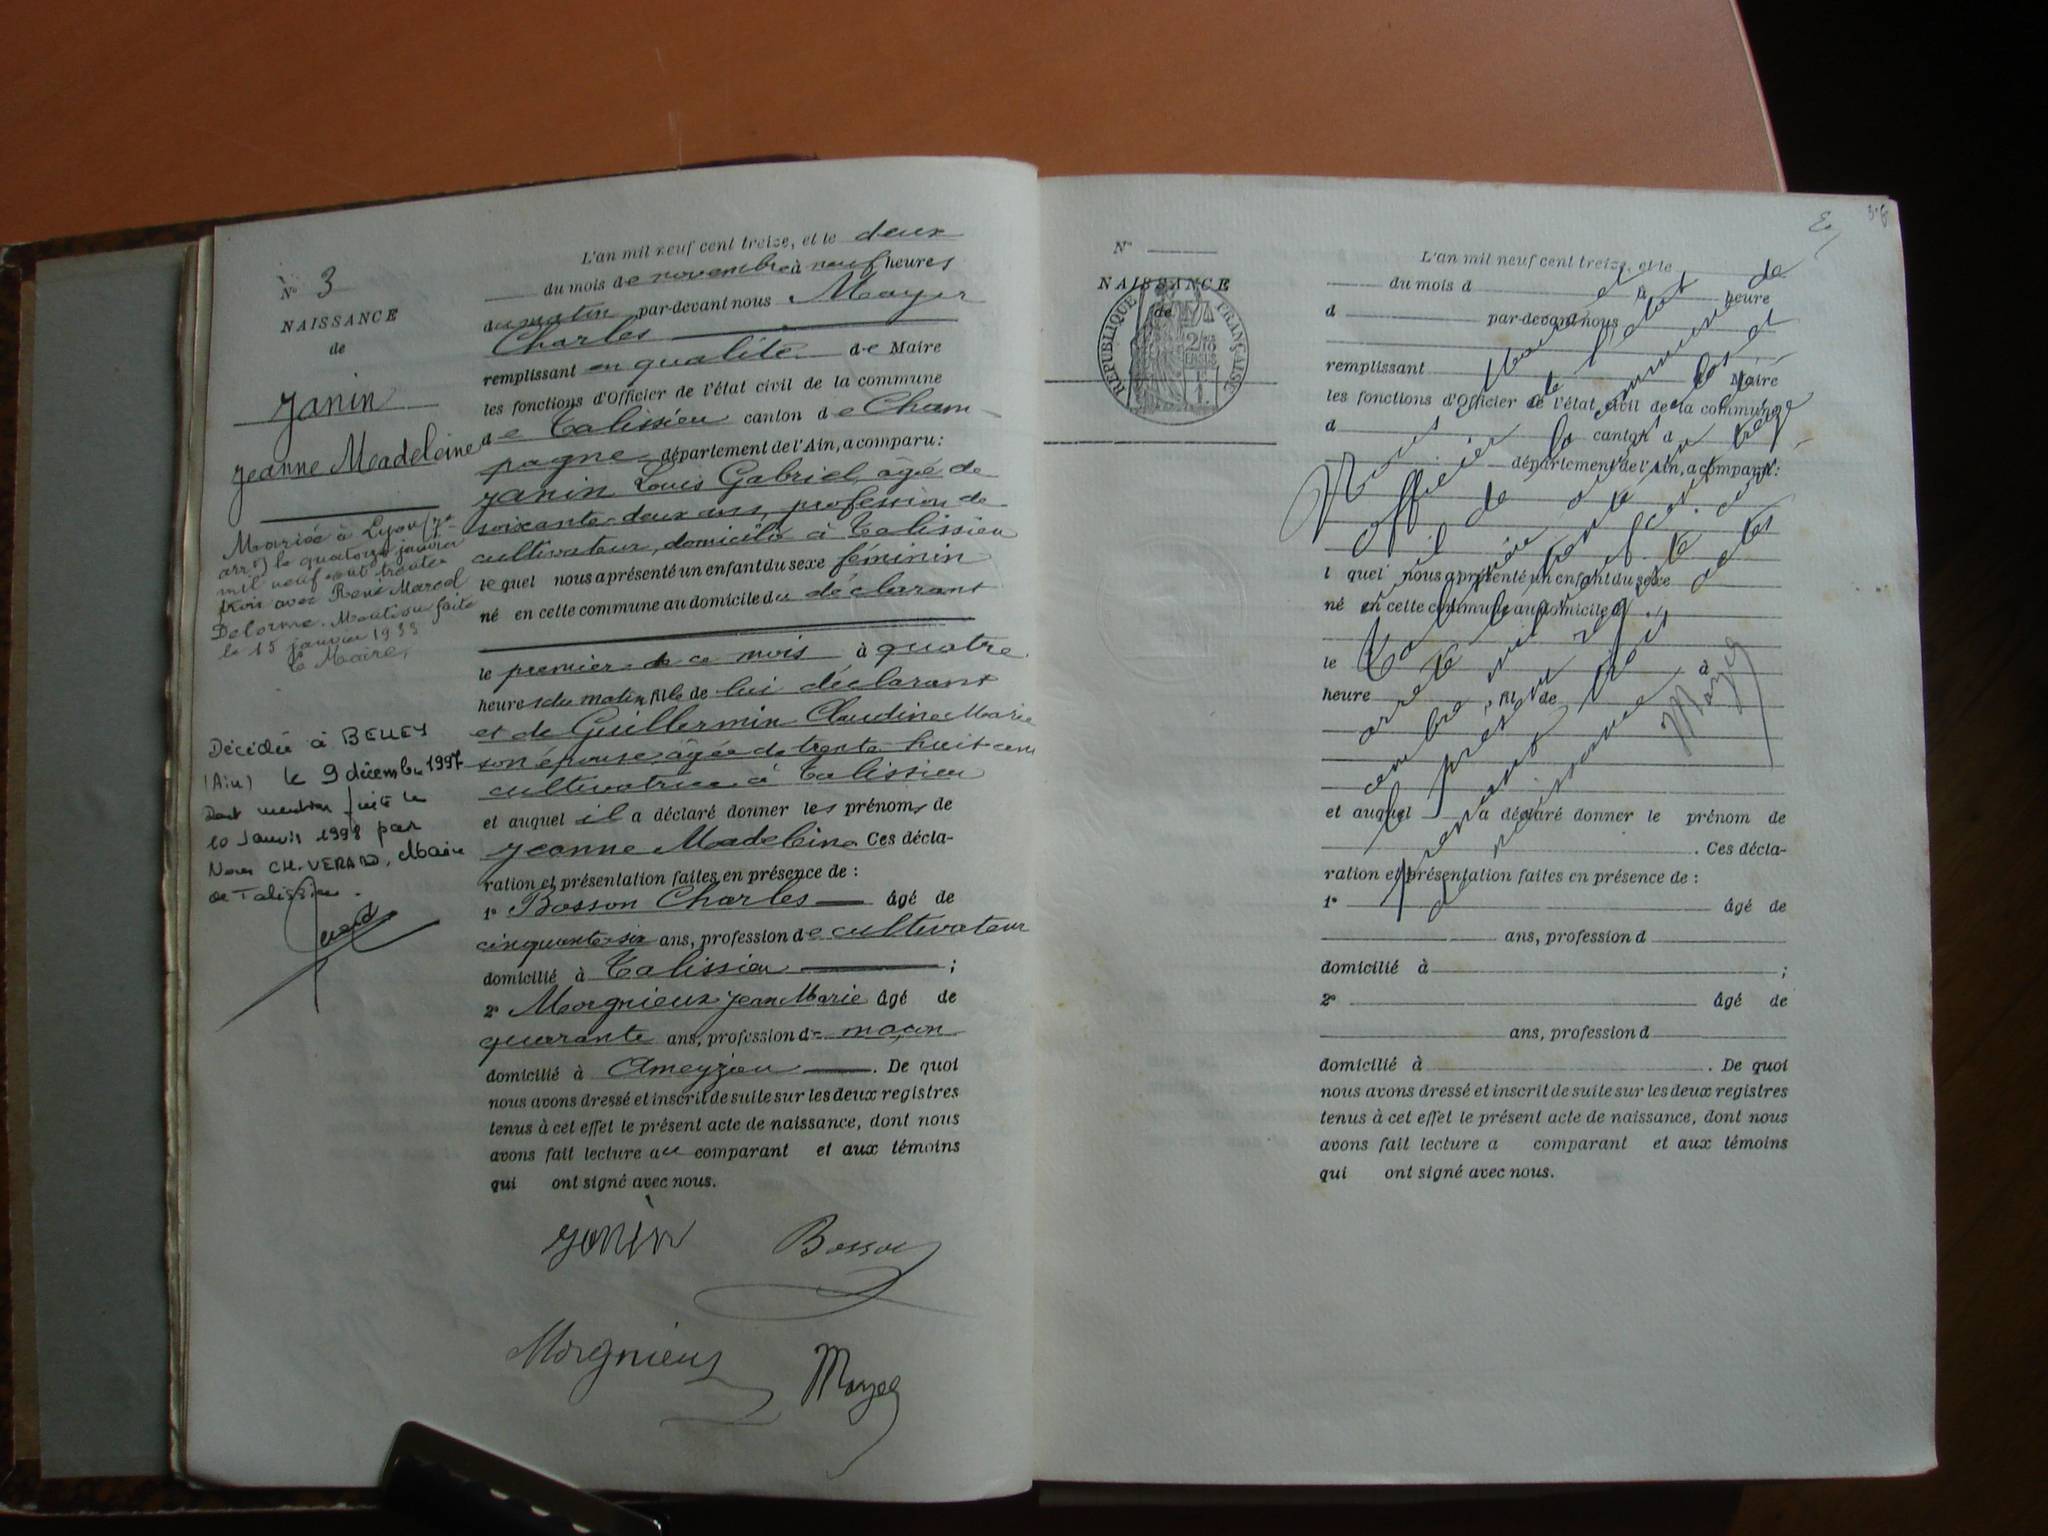 N° 3
NAISSANCE
de
Janin
Jeanne Madeleine
Mariée à Lyon (7e
arrt) le quatorze janvier
mil neuf cent trente
trois avec René Marcel
Delorme. Mention faite
le 15 janvier 1933
Le Maire,
Décédée à BELLEY
(Ain) le 9 décembre 1997
Dont mention faite le
10 Janvier 1998 par
Nous CH. VERARD, Maire
de Talissieu.
L'an mil neuf cent treize, et le deux
du mois de novembre à neuf heures
du matin par-devant nous Mayer
Charles
remplissant en qualité de Maire
les fonctions d'Officier de l'état civil de la commune
de Talissieu canton de Cham-
pagne département de l'Ain, a comparu:
Janin Louis Gabriel, âgé de
soixante-deux ans, profession de
cultivateur, domicilié à Talissieu
lequel nous a présenté un enfant du sexe féminin
né en cette commune au domicile du déclarant
le premier de ce mois à quatre
heures du matin, fille de lui déclarant
et de Guillermin Claudine Marie
son épouse âgée de trente huit ans
cultivatrice à Talissieu
et auquel il a déclaré donner les prénoms de
Jeanne Madeleine Ces décla-
ration et présentation faites en présence de :
1° Bosson Charles âgé de
cinquante-six ans, profession de cultivateur
domicilié à Talissieu ;
2° Morgnieux Jean Marie âgé de
quarante ans, profession de maçon
domicilié à Ameyzieu . De quoi
nous avons dressé et inscrit de suite sur les deux registres
tenus à cet effet le présent acte de naissance, dont nous
avons fait lecture au comparant et aux témoins
qui ont signé avec nous.
Janin Bosson
Morgnieux Mayer
N°
NAISSANCE
de
REPUBLIQUE FRANÇAISE
L'an mil neuf cent treize, et le
du mois d à heure
d par-devant nous
remplissant Maire
les fonctions d'Officier de l'état civil de la commune
d canton d
département de l'Ain, a comparu:
l quel nous a présenté un enfant du sexe
né en cette commune au domicile d
le à
heure , fil de
et auquel a déclaré donner le prénom de
. Ces décla-
ration et présentation faites en présence de :
1° âgé de
ans, profession d
domicilié à ;
2° âgé de
ans, profession d
domicilié à . De quoi
nous avons dressé et inscrit de suite sur les deux registres
tenus à cet effet le présent acte de naissance, dont nous
avons fait lecture a comparant et aux témoins
qui ont signé avec nous.
Nous Maire et
officier de l'état
Mayer